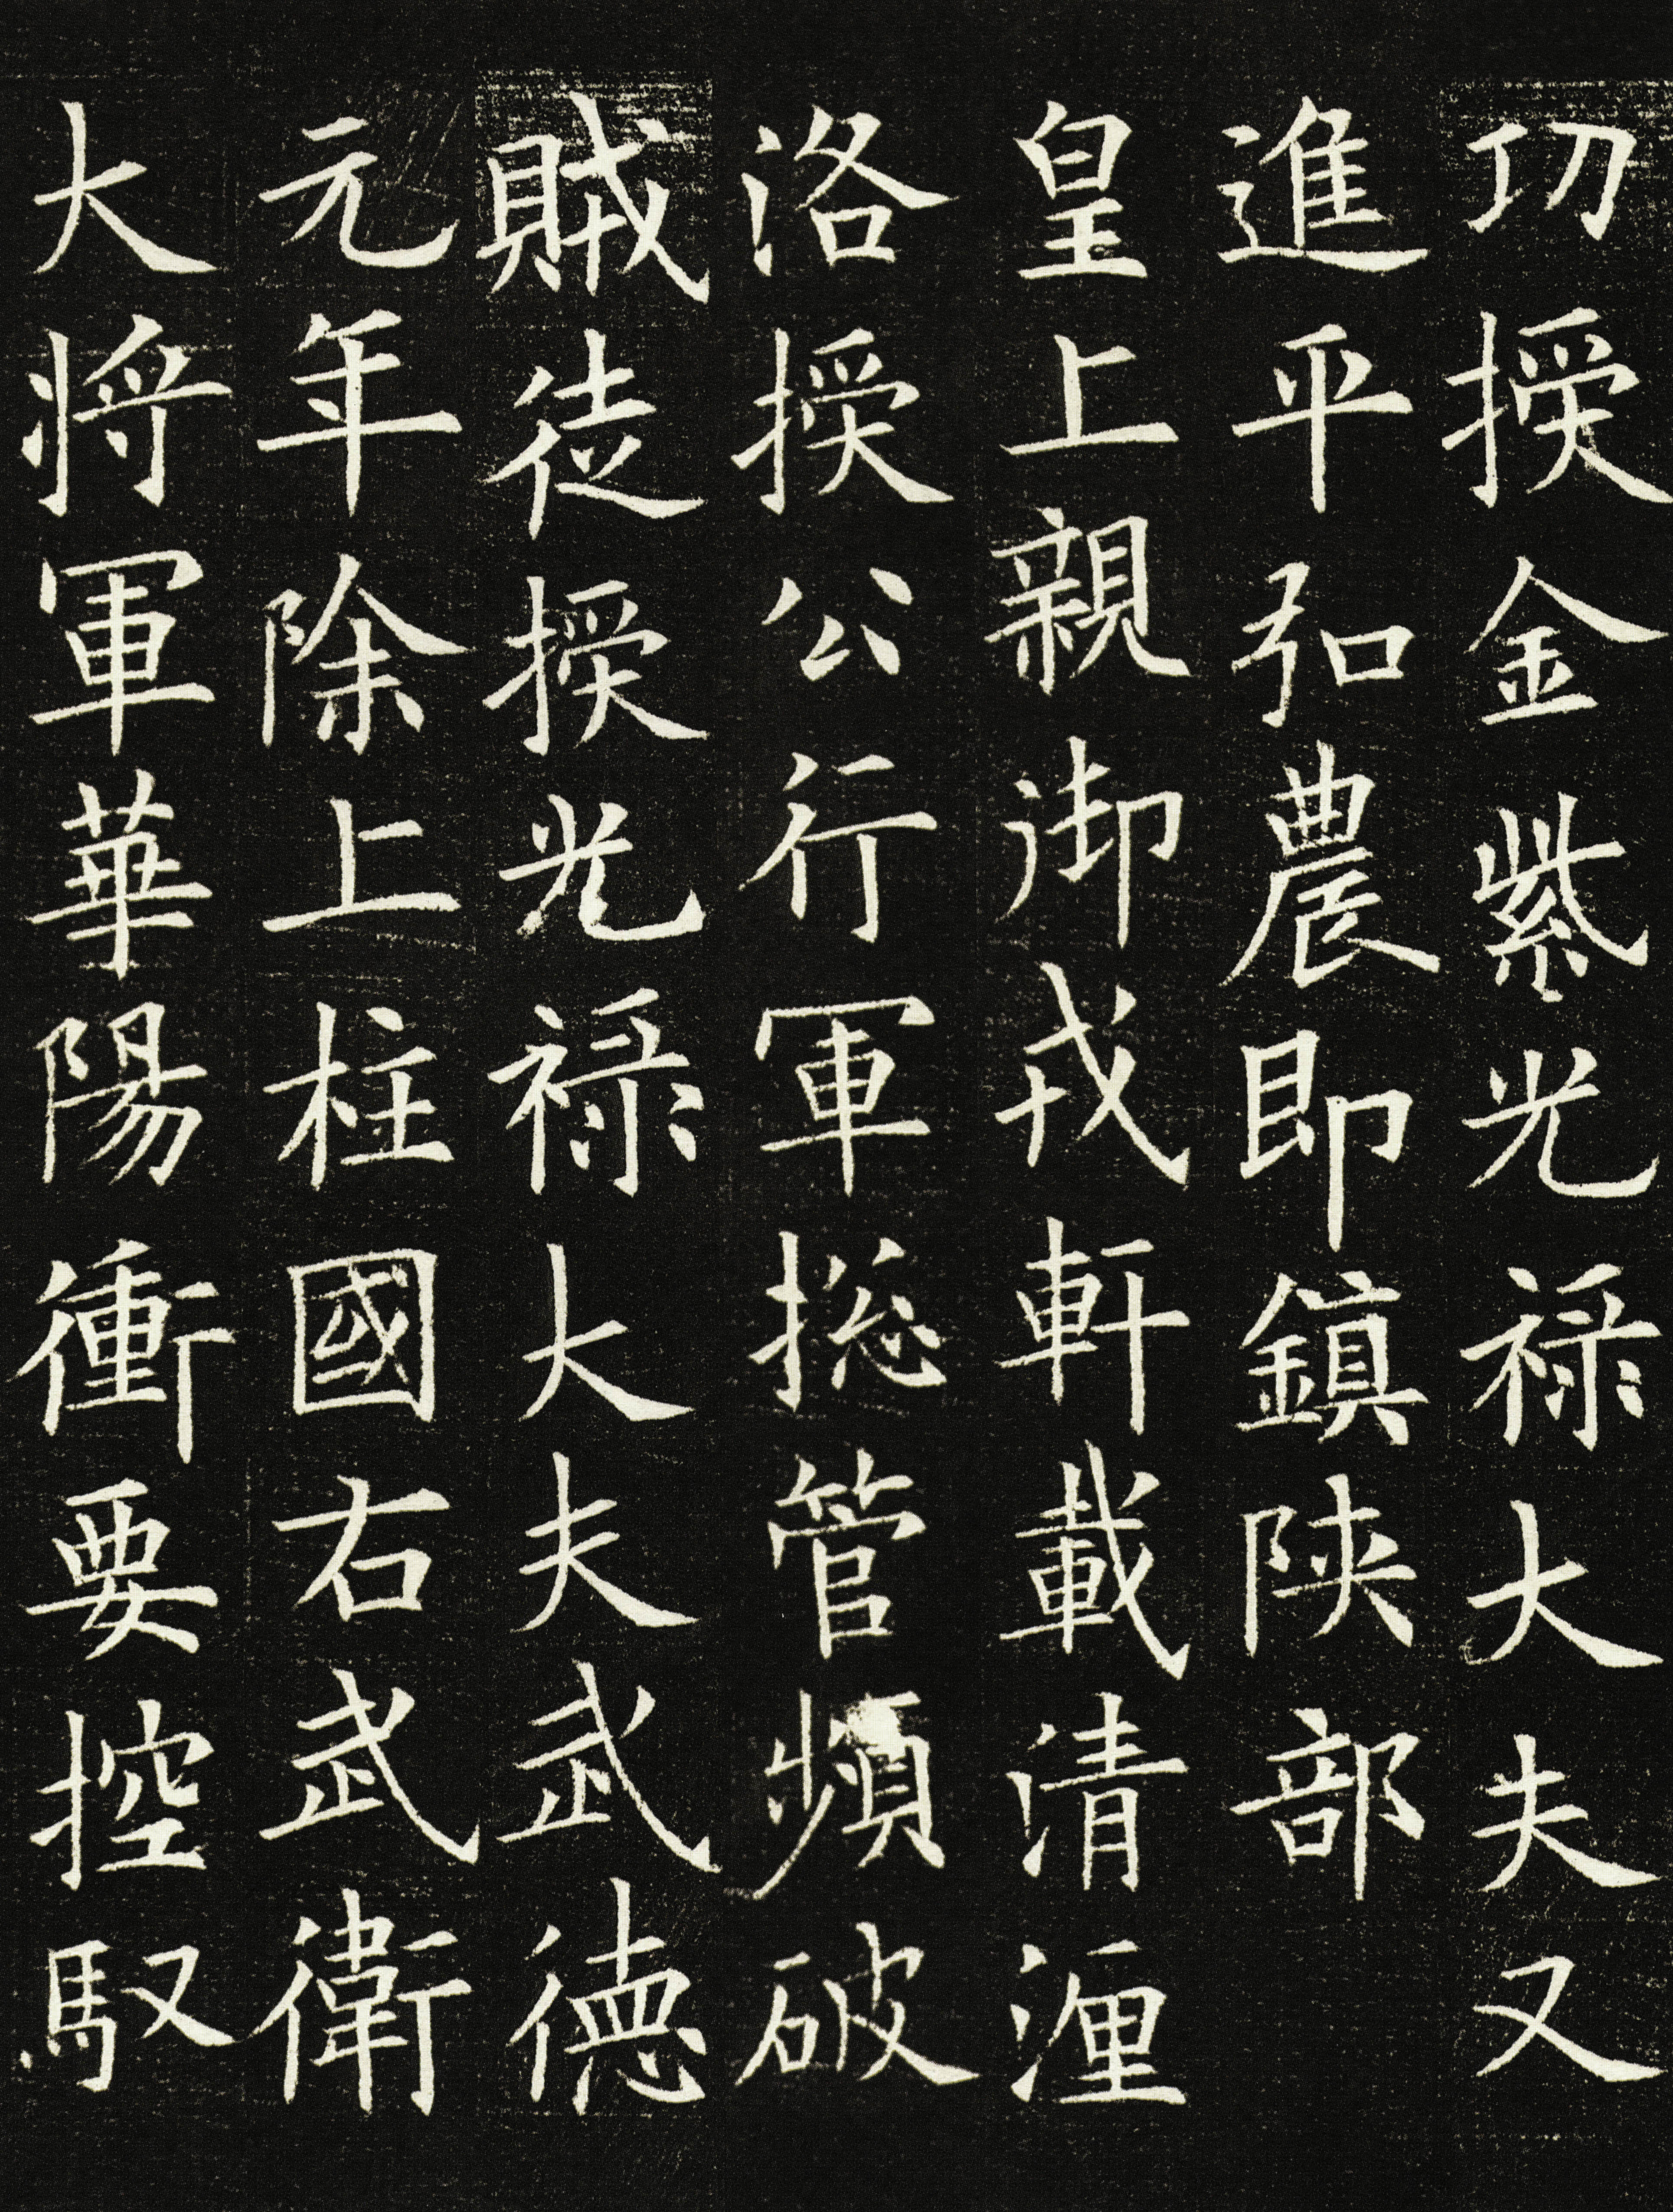 功授金紫光祿大夫又
進平弘農即鎮陝部
皇上親御戎軒載清瀍
洛授公行軍捴管頻破
賊徒授光祿大夫武德
元年除上柱國右武衛
大將軍華陽衝要控馭